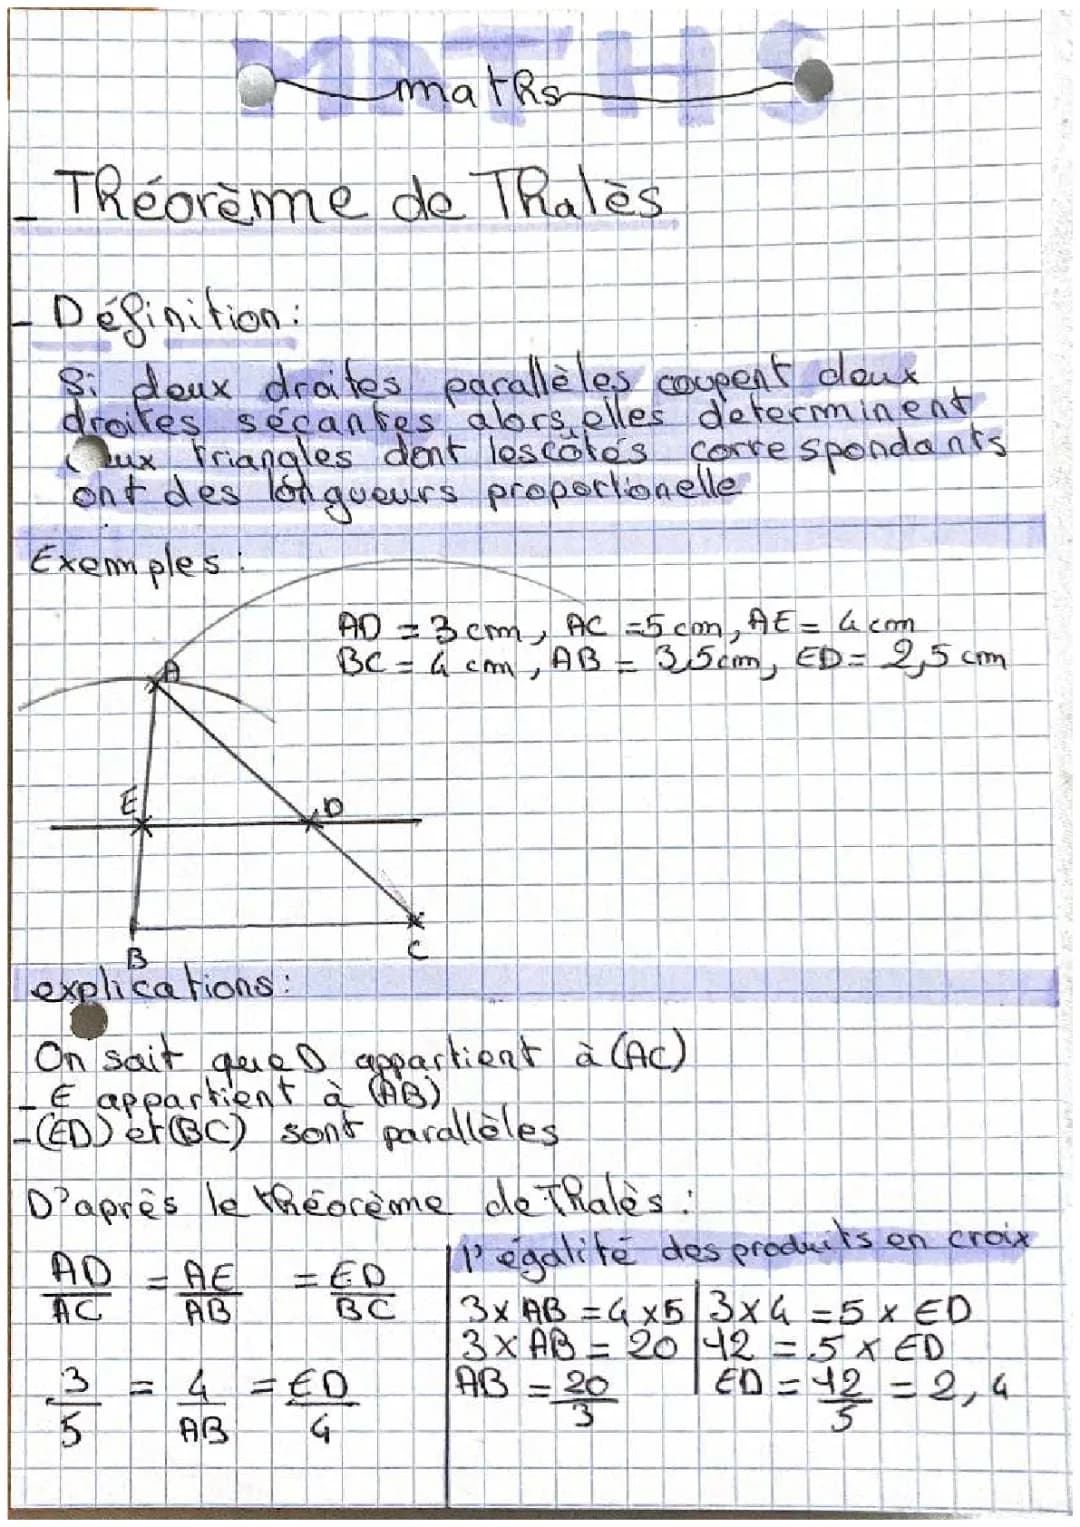 MATHS
maths
- Théorème de Thalès
- Définition:
Si deux droites parallèles coupent deux
droites sécantes alors, elles determinent
deux triangles dont les côtés correspondants
ont des longueurs proportionelle
Exemples:
AD = 3 cm, AC = 5 cm, AE = 4 cm
BC = 4 cm, AB = 3,5 cm, ED = 2,5 cm
A
E
D
B
C
explications:
On sait que D appartient à (AC)
- E appartient à (AB)
- (ED) et (BC) sont parallèles
D'après le théorème de Thalès:
AD/AC = AE/AB = ED/BC
3/5 = 4/AB = ED/4
l'égalité des produits en croix
3 x AB = 4 x 5 | 3 x 4 = 5 x ED
3 x AB = 20 | 12 = 5 x ED
AB = 20/3 | ED = 12/5 = 2,4